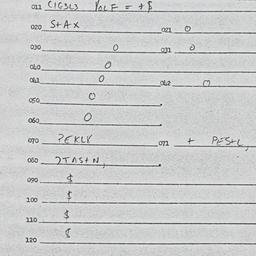 011 CIGSL3 POLF = + $
020 S+AX 021 0
030 0 031 0
040 0
041 0 042 0
050 0
060 0
070 PEKLY 071 + PES+L,
080 2TAS+N,
090 $
100 $
110 $
120 $